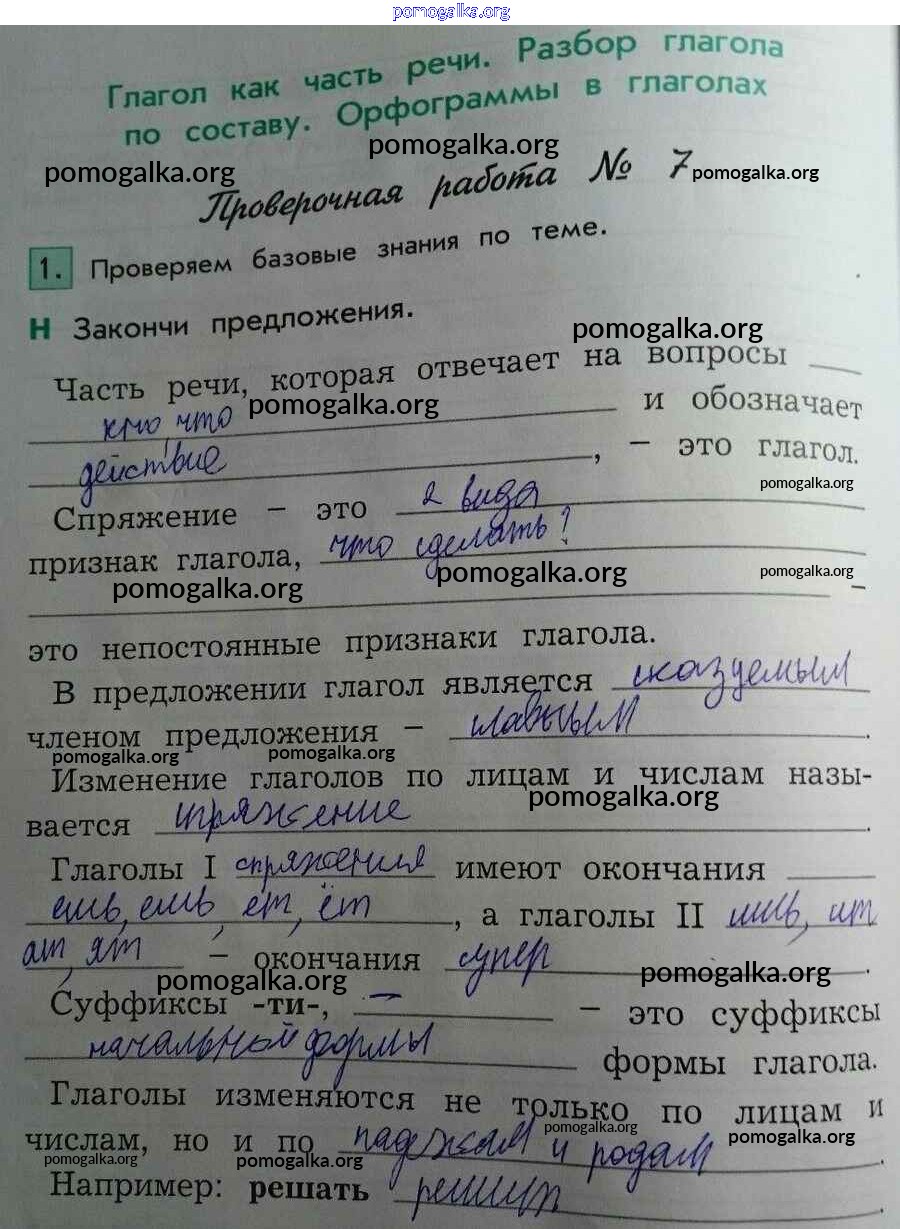 pomogalka.org
Глагол как часть речи. Разбор глагола
по составу. Орфограммы в глаголах
pomogalka.org
pomogalka.org
pomogalka.org
Проверочная работа № 7
1. Проверяем базовые знания по теме.
Н Закончи предложения.
pomogalka.org
Часть речи, которая отвечает на вопросы
кто что pomogalka.org и обозначает
действие, – это глагол.
pomogalka.org
Спряжение – это 2 вида
признак глагола, что сделать?
pomogalka.org pomogalka.org pomogalka.org
–
это непостоянные признаки глагола.
В предложении глагол является сказуемым
членом предложения – главным.
pomogalka.org pomogalka.org
Изменение глаголов по лицам и числам назы-
pomogalka.org
вается спряжение.
Глаголы I спряжения имеют окончания
ешь, ешь, ет, ёт, а глаголы II ишь, ит
ат, ят – окончания супер.
pomogalka.org pomogalka.org
Суффиксы -ти-, — – это суффиксы
начальной формы формы глагола.
Глаголы изменяются не только по лицам и
числам, но и по падежам и родам.
pomogalka.org pomogalka.org pomogalka.org pomogalka.org
Например: решать решит.